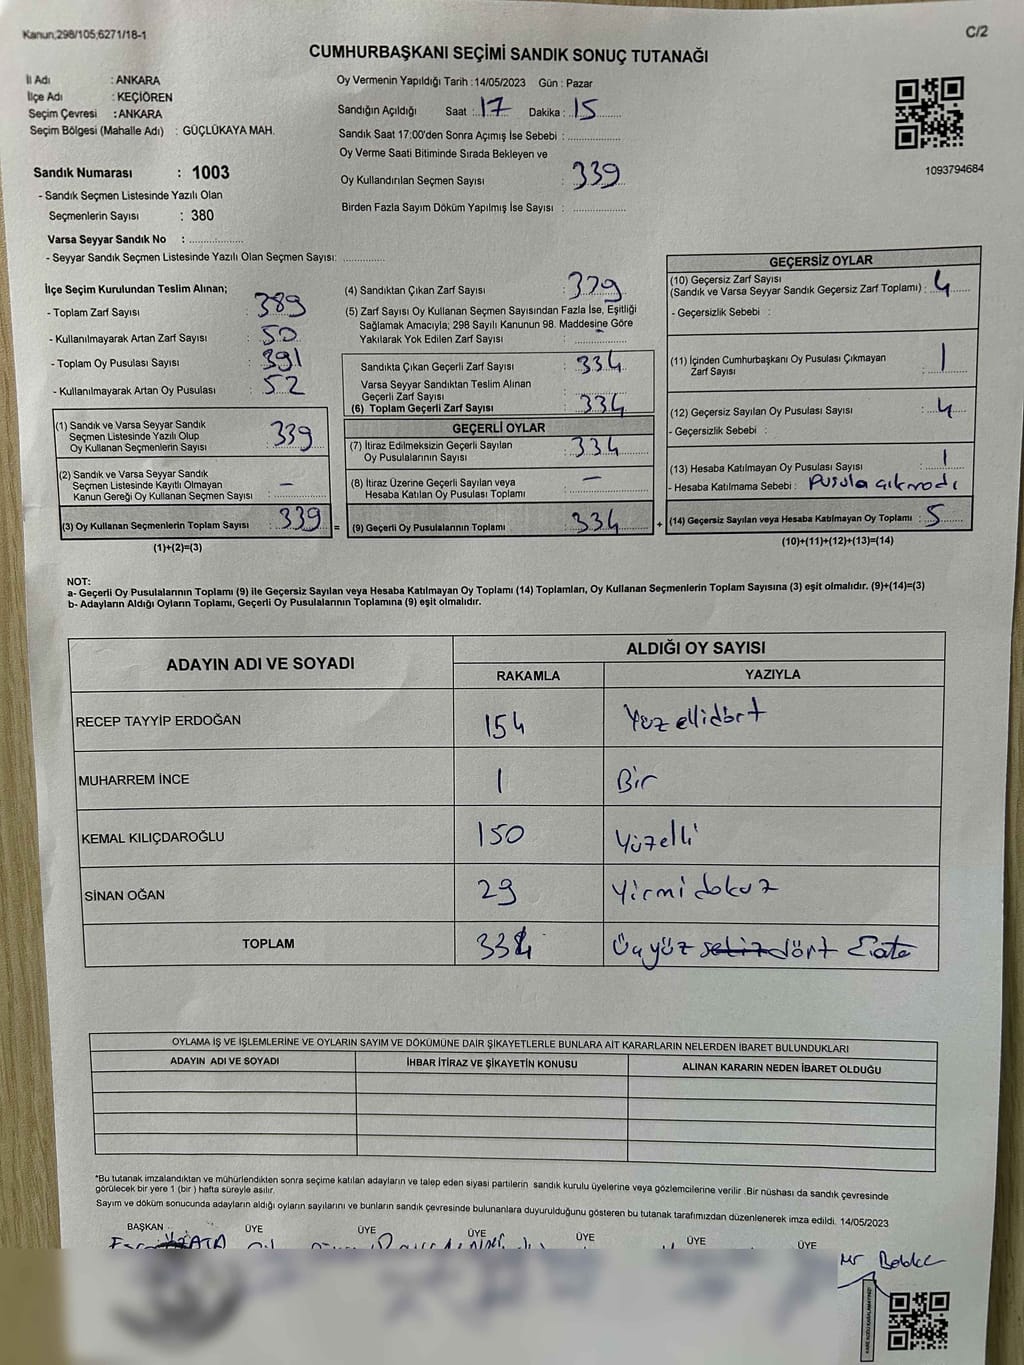 Kanun,298/105,6271/18-1
C/2
CUMHURBAŞKANI SEÇİMİ SANDIK SONUÇ TUTANAĞI
İl Adı : ANKARA
İlçe Adı : KEÇİÖREN
Seçim Çevresi : ANKARA
Seçim Bölgesi (Mahalle Adı) : GÜÇLÜKAYA MAH.
Oy Vermenin Yapıldığı Tarih : 14/05/2023 Gün : Pazar
Sandığın Açıldığı Saat : 17 Dakika : 15
Sandık Saat 17:00'den Sonra Açımış İse Sebebi :
Oy Verme Saati Bitiminde Sırada Bekleyen ve
Oy Kullandırılan Seçmen Sayısı : 339
Birden Fazla Sayım Döküm Yapılmış İse Sayısı :
1093794684
Sandık Numarası : 1003
- Sandık Seçmen Listesinde Yazılı Olan
Seçmenlerin Sayısı : 380
Varsa Seyyar Sandık No :
- Seyyar Sandık Seçmen Listesinde Yazılı Olan Seçmen Sayısı:
İlçe Seçim Kurulundan Teslim Alınan;
- Toplam Zarf Sayısı : 389
- Kullanılmayarak Artan Zarf Sayısı : 50
- Toplam Oy Pusulası Sayısı : 391
- Kullanılmayarak Artan Oy Pusulası : 52
(1) Sandık ve Varsa Seyyar Sandık
Seçmen Listesinde Yazılı Olup
Oy Kullanan Seçmenlerin Sayısı : 339
(2) Sandık ve Varsa Seyyar Sandık
Seçmen Listesinde Kayıtlı Olmayan
Kanun Gereği Oy Kullanan Seçmen Sayısı : -
(3) Oy Kullanan Seçmenlerin Toplam Sayısı : 339 =
(1)+(2)=(3)
(4) Sandıktan Çıkan Zarf Sayısı : 339
(5) Zarf Sayısı Oy Kullanan Seçmen Sayısından Fazla İse, Eşitliği
Sağlamak Amacıyla; 298 Sayılı Kanunun 98. Maddesine Göre
Yakılarak Yok Edilen Zarf Sayısı :
Sandıkta Çıkan Geçerli Zarf Sayısı : 334
Varsa Seyyar Sandıktan Teslim Alınan
Geçerli Zarf Sayısı :
(6) Toplam Geçerli Zarf Sayısı : 334
GEÇERLİ OYLAR
(7) İtiraz Edilmeksizin Geçerli Sayılan
Oy Pusulalarının Sayısı : 334
(8) İtiraz Üzerine Geçerli Sayılan veya
Hesaba Katılan Oy Pusulası Toplamı : -
(9) Geçerli Oy Pusulalarının Toplamı : 334 +
GEÇERSİZ OYLAR
(10) Geçersiz Zarf Sayısı
(Sandık ve Varsa Seyyar Sandık Geçersiz Zarf Toplamı) : 4
- Geçersizlik Sebebi :
(11) İçinden Cumhurbaşkanı Oy Pusulası Çıkmayan
Zarf Sayısı : 1
(12) Geçersiz Sayılan Oy Pusulası Sayısı : 4
- Geçersizlik Sebebi :
(13) Hesaba Katılmayan Oy Pusulası Sayısı : 1
- Hesaba Katılmama Sebebi : Pusula çıkmadı
(14) Geçersiz Sayılan veya Hesaba Katılmayan Oy Toplamı : 5
(10)+(11)+(12)+(13)=(14)
NOT:
a- Geçerli Oy Pusulalarının Toplamı (9) ile Geçersiz Sayılan veya Hesaba Katılmayan Oy Toplamı (14) Toplamları, Oy Kullanan Seçmenlerin Toplam Sayısına (3) eşit olmalıdır. (9)+(14)=(3)
b- Adayların Aldığı Oyların Toplamı, Geçerli Oy Pusulalarının Toplamına (9) eşit olmalıdır.
ADAYIN ADI VE SOYADI
ALDIĞI OY SAYISI
RAKAMLA YAZIYLA
RECEP TAYYİP ERDOĞAN 154 Yüz ellidört
MUHARREM İNCE 1 Bir
KEMAL KILIÇDAROĞLU 150 Yüzelli
SİNAN OĞAN 29 Yirmi dokuz
TOPLAM 334 Üçyüz sekiz dört
OYLAMA İŞ VE İŞLEMLERİNE VE OYLARIN SAYIM VE DÖKÜMÜNE DAİR ŞİKAYETLERLE BUNLARA AİT KARARLARIN NELERDEN İBARET BULUNDUKLARI
ADAYIN ADI VE SOYADI İHBAR İTİRAZ VE ŞİKAYETİN KONUSU ALINAN KARARIN NEDEN İBARET OLDUĞU
*Bu tutanak imzalandıktan ve mühürlendikten sonra seçime katılan adayların ve talep eden siyasi partilerin sandık kurulu üyelerine veya gözlemcilerine verilir .Bir nüshası da sandık çevresinde
görülecek bir yere 1 (bir ) hafta süreyle asılır.
Sayım ve döküm sonucunda adayların aldığı oyların sayılarını ve bunların sandık çevresinde bulunanlara duyurulduğunu gösteren bu tutanak tarafımızdan düzenlenerek imza edildi. 14/05/2023
BAŞKAN ÜYE ÜYE ÜYE ÜYE ÜYE ÜYE